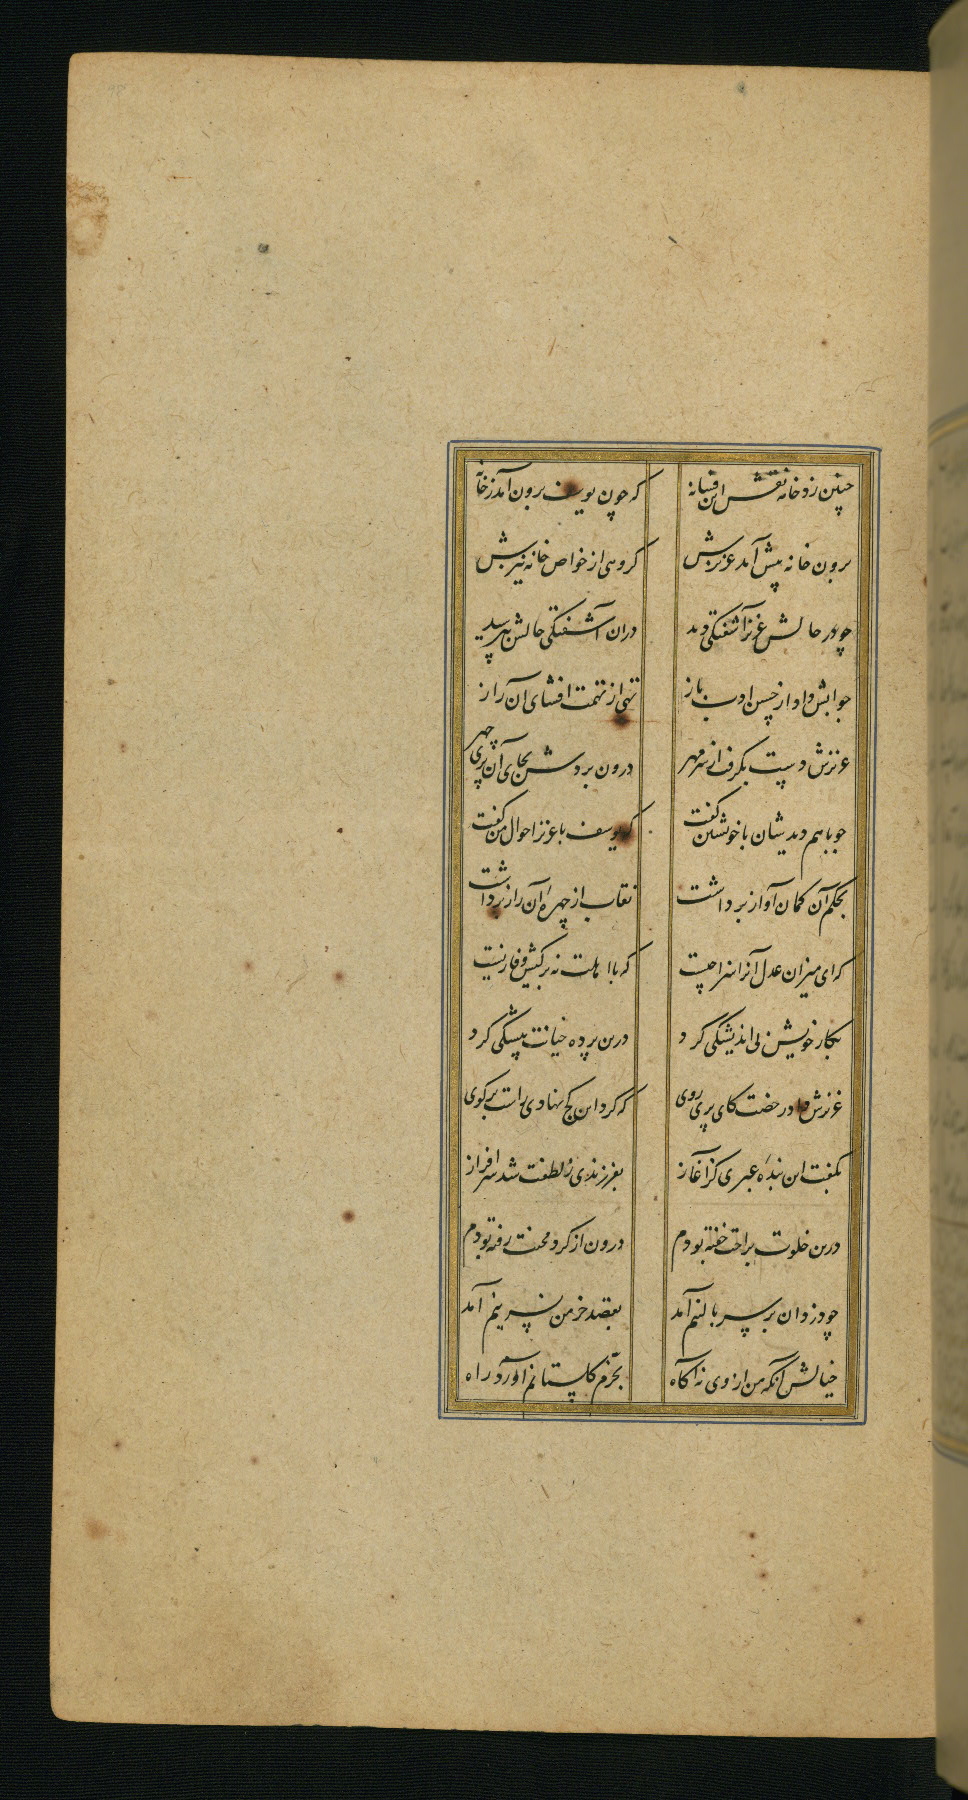 چنین زد خامه نقش این فسانه که چون یوسف برون آمد ز خانه
برون خانه پیش آمد عزیزش گروهی از خواص خانه نیزش
چو در حالش عزیز آشفتگی دید در آن آشفتگی حالش بپرسید
جوابش داد از حسن ادب باز تهی از تهمت افشای آن راز
عزیزش دست بگرفت از سر مهر درون بردش بجای آن پری چهر
چو با هم دیدشان با خویشتن گفت که یوسف با عزیز احوال من گفت
بحکم آن گمان آواز برداشت نقاب از چهرهٔ آن راز برداشت
که ای میزان عدل آنرا سزا چیست که با اهلت نه بر کیش وفا زیست
بکار خویش بی اندیشگی کرد درین پرده خیانت پیشگی کرد
عزیزش داد رخصت کای پری روی که کرد این کج نهادی راست برگوی
بگفت این بندهٔ عبری کز آغاز بفرزندی ز لطفت شد سرافراز
درین خلوت براحت خفته بودم درون از گرد محنت رفته بودم
چو دزدان بر سر بالینم آمد بقصد خرمن نسرینم آمد
خیالش آنکه من از وی نه آگاه بحرم گلستانم آورد راه